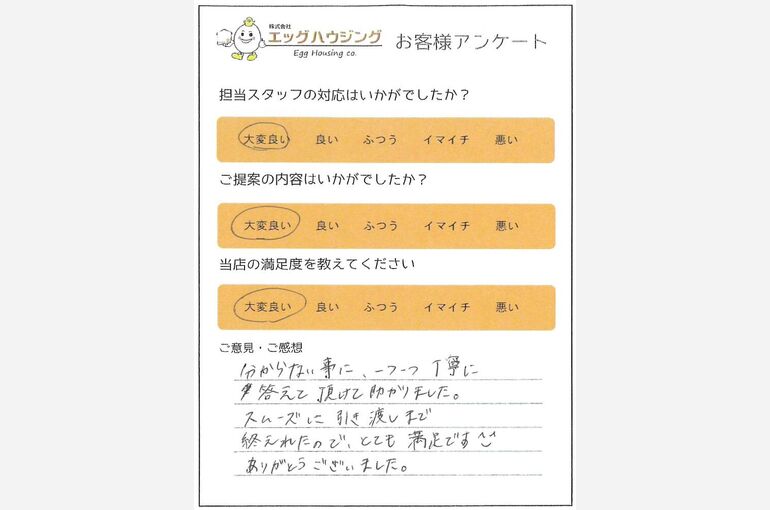 株式会社
エッグハウジング
Egg Housing co.
お客様アンケート
担当スタッフの対応はいかがでしたか？
大変良い 良い ふつう イマイチ 悪い
ご提案の内容はいかがでしたか？
大変良い 良い ふつう イマイチ 悪い
当店の満足度を教えてください
大変良い 良い ふつう イマイチ 悪い
ご意見・ご感想
分からない事に、一つ一つ丁寧に
答えて頂けて助かりました。
スムーズに引き渡しまで
終えれたので、とても満足です
ありがとうございました。